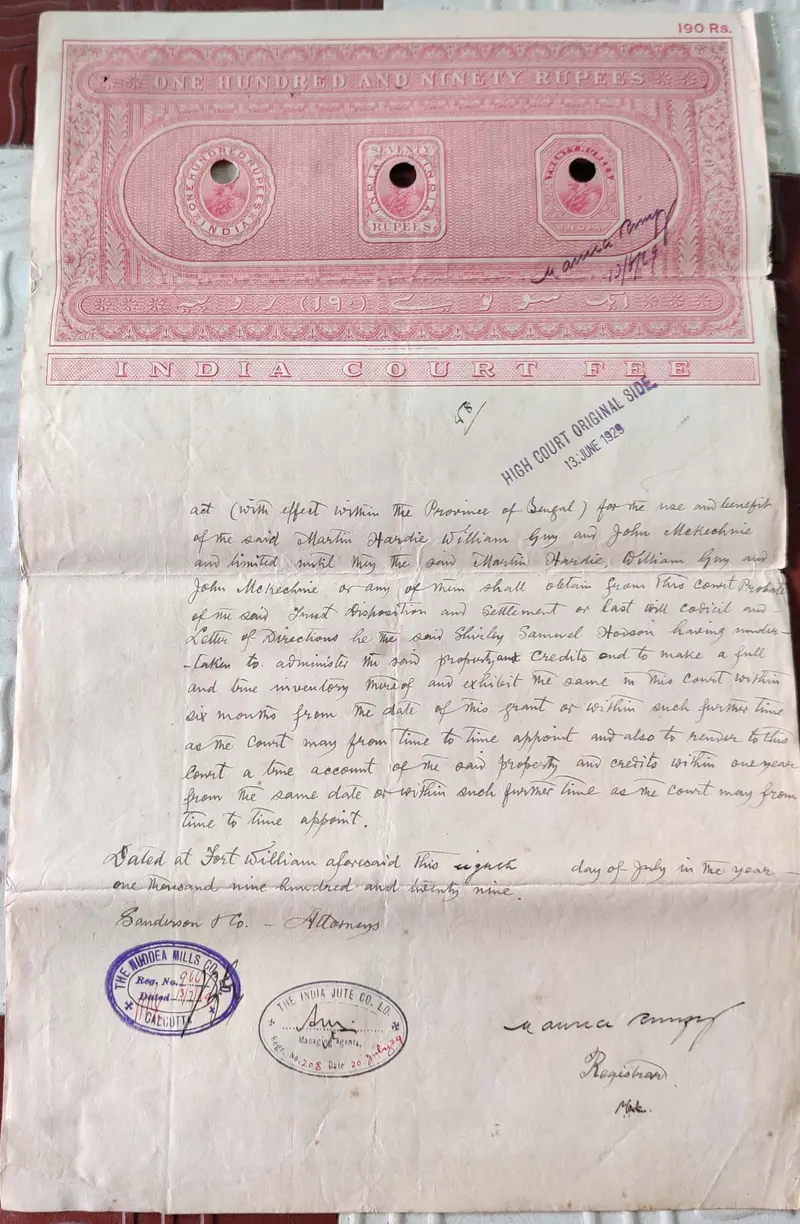 190 Rs.
ONE HUNDRED AND NINETY RUPEES
ONE HUNDRED RUPEES
INDIA
SEVENTY
INDIA INDIA
RUPEES
INDIA
ایک سو نوے (۱۹۰) روپیہ
INDIA COURT FEE
HIGH COURT ORIGINAL SIDE
13 JUNE 1929
act (with effect within the Province of Bengal) for the use and benefit
of the said Martin Hardie William Guy and John McKechnie
and limited until they the said Martin Hardie, William Guy and
John McKechnie or any of them shall obtain from this Court Probate
of the said Trust Disposition and Settlement or last will codicil and
Letter of Directions he the said Shirley Samuel Hodson having under-
-taken to administer the said property and credits and to make a full
and true inventory thereof and exhibit the same in this Court within
six months from the date of this grant or within such further time
as the Court may from time to time appoint and also to render to this
Court a true account of the said property and credits within one year
from the same date or within such further time as the Court may from
time to time appoint.
Dated at Fort William aforesaid this eighth day of July in the year
one thousand nine hundred and twenty nine.
Sanderson & Co. - Attorneys
THE NUDDEA MILLS CO. LD.
Reg. No. 960
Dated
CALCUTTA
THE INDIA JUTE CO. LD.
Managing Agents.
Regr. No. 208 Date 20 July 29
Registrar